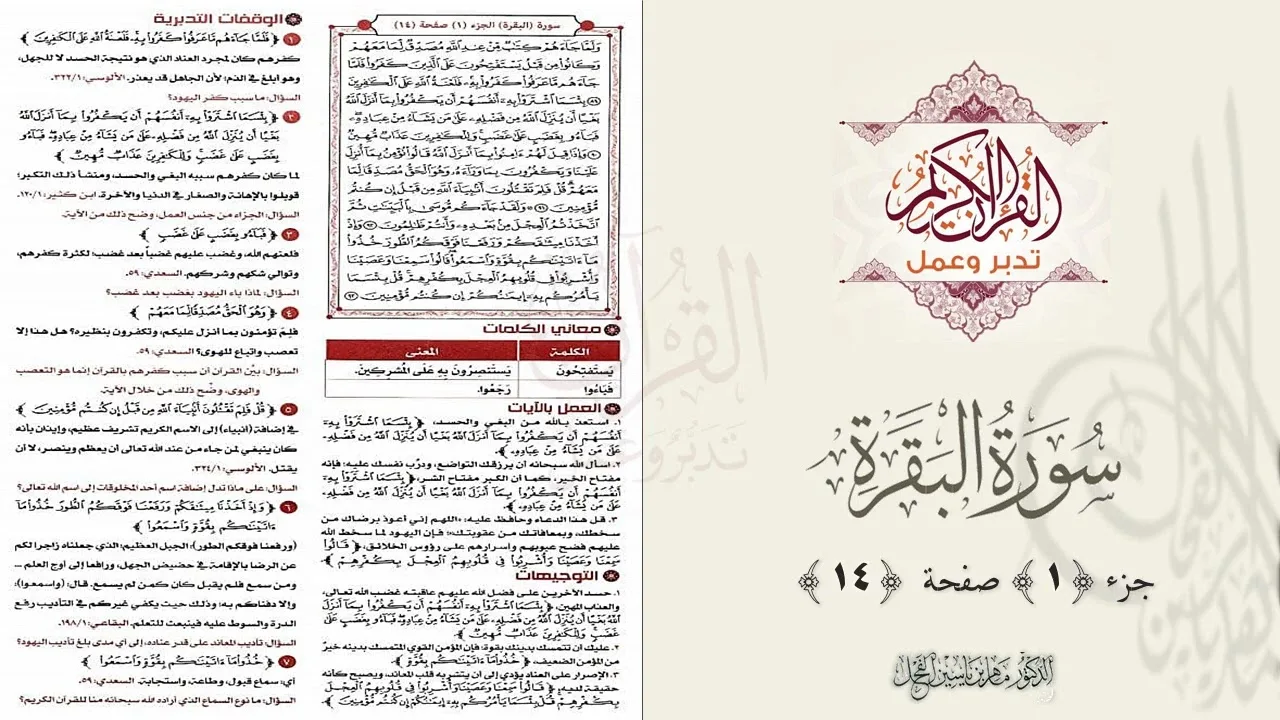 القرآن الكريم
تدبر وعمل
سورة البقرة
جزء ﴿١﴾ صفحة ﴿١٤﴾
الدكتور ماهر ياسين الفحل
سورة (البقرة) الجزء (١) صفحة (١٤)
وَلَمَّا جَاءَهُمْ كِتَابٌ مِنْ عِندِ اللَّهِ مُصَدِّقٌ لِمَا مَعَهُمْ
وَكَانُوا مِن قَبْلُ يَسْتَفْتِحُونَ عَلَى الَّذِينَ كَفَرُوا فَلَمَّا
جَاءَهُم مَّا عَرَفُوا كَفَرُوا بِهِ فَلَعْنَةُ اللَّهِ عَلَى الْكَافِرِينَ
﴿٨٩﴾ بِئْسَمَا اشْتَرَوْا بِهِ أَنفُسَهُمْ أَن يَكْفُرُوا بِمَا أَنزَلَ اللَّهُ
بَغْيًا أَن يُنَزِّلَ اللَّهُ مِن فَضْلِهِ عَلَىٰ مَن يَشَاءُ مِنْ عِبَادِهِ
فَبَاءُو بِغَضَبٍ عَلَىٰ غَضَبٍ وَلِلْكَافِرِينَ عَذَابٌ مُّهِينٌ
﴿٩٠﴾ وَإِذَا قِيلَ لَهُمْ ءَامِنُوا بِمَا أَنزَلَ اللَّهُ قَالُوا نُؤْمِنُ بِمَا أُنزِلَ
عَلَيْنَا وَيَكْفُرُونَ بِمَا وَرَاءَهُ وَهُوَ الْحَقُّ مُصَدِّقًا لِّمَا
مَعَهُمْ قُلْ فَلِمَ تَقْتُلُونَ أَنبِيَاءَ اللَّهِ مِن قَبْلُ إِن كُنتُم
مُّؤْمِنِينَ ﴿٩١﴾ وَلَقَدْ جَاءَكُم مُّوسَىٰ بِالْبَيِّنَاتِ ثُمَّ
اتَّخَذْتُمُ الْعِجْلَ مِن بَعْدِهِ وَأَنتُمْ ظَالِمُونَ ﴿٩٢﴾ وَإِذْ
أَخَذْنَا مِيثَاقَكُمْ وَرَفَعْنَا فَوْقَكُمُ الطُّورَ خُذُوا
مَا ءَاتَيْنَاكُم بِقُوَّةٍ وَاسْمَعُوا قَالُوا سَمِعْنَا وَعَصَيْنَا
وَأُشْرِبُوا فِي قُلُوبِهِمُ الْعِجْلَ بِكُفْرِهِمْ قُلْ بِئْسَمَا
يَأْمُرُكُم بِهِ إِيمَانُكُمْ إِن كُنتُم مُّؤْمِنِينَ ﴿٩٣﴾
معاني الكلمات
الكلمة المعنى
يَسْتَفْتِحُونَ يَسْتَنْصِرُونَ بِهِ عَلَى المُشْرِكِينَ.
فَبَاءُوا رَجَعُوا.
العمل بالآيات
١. استعذ بالله من البغي والحسد، ﴿ بِئْسَمَا اشْتَرَوْا بِهِ
أَنفُسَهُمْ أَن يَكْفُرُوا بِمَا أَنزَلَ اللَّهُ بَغْيًا أَن يُنَزِّلَ اللَّهُ مِن فَضْلِهِ
عَلَىٰ مَن يَشَاءُ مِنْ عِبَادِهِ ﴾.
٢. اسأل الله سبحانه أن يرزقك التواضع، ودرّب نفسك عليه؛ فإنه
مفتاح الخير، كما أن الكبر مفتاح الشر، ﴿ بِئْسَمَا اشْتَرَوْا بِهِ
أَنفُسَهُمْ أَن يَكْفُرُوا بِمَا أَنزَلَ اللَّهُ بَغْيًا أَن يُنَزِّلَ اللَّهُ مِن فَضْلِهِ
عَلَىٰ مَن يَشَاءُ مِنْ عِبَادِهِ ﴾.
٣. قل هذا الدعاء وحافظ عليه: «اللهم إني أعوذ برضاك من
سخطك، وبمعافاتك من عقوبتك»؛ فإن اليهود لما سخط الله
عليهم فضح عيوبهم وأسرارهم على رؤوس الخلائق، ﴿ قَالُوا
سَمِعْنَا وَعَصَيْنَا وَأُشْرِبُوا فِي قُلُوبِهِمُ الْعِجْلَ بِكُفْرِهِمْ ﴾.
التوجيهات
١. حسد الآخرين على فضل الله عليهم عاقبته غضب الله تعالى،
والعذاب المهين، ﴿ بِئْسَمَا اشْتَرَوْا بِهِ أَنفُسَهُمْ أَن يَكْفُرُوا بِمَا أَنزَلَ
اللَّهُ بَغْيًا أَن يُنَزِّلَ اللَّهُ مِن فَضْلِهِ عَلَىٰ مَن يَشَاءُ مِنْ عِبَادِهِ فَبَاءُو بِغَضَبٍ عَلَىٰ
غَضَبٍ وَلِلْكَافِرِينَ عَذَابٌ مُّهِينٌ ﴾.
٢. عليك أن تتمسك بدينك بقوة؛ فإن المؤمن القوي المتمسك بدينه خير
من المؤمن الضعيف، ﴿ خُذُوا مَا ءَاتَيْنَاكُم بِقُوَّةٍ ﴾.
٣. الإصرار على العناد يؤدي إلى أن يتشربه قلب المعاند، ويصبح كأنه
حقيقة لديه، ﴿ قَالُوا سَمِعْنَا وَعَصَيْنَا وَأُشْرِبُوا فِي قُلُوبِهِمُ الْعِجْلَ
بِكُفْرِهِمْ قُلْ بِئْسَمَا يَأْمُرُكُم بِهِ إِيمَانُكُمْ إِن كُنتُم مُّؤْمِنِينَ ﴾
الوقفات التدبرية
١ ﴿ فَلَمَّا جَاءَهُم مَّا عَرَفُوا كَفَرُوا بِهِ فَلَعْنَةُ اللَّهِ عَلَى الْكَافِرِينَ ﴾
كفرهم كان لمجرد العناد الذي هو نتيجة الحسد لا للجهل،
وهو أبلغ في الذم؛ لأن الجاهل قد يعذر. الألوسي:٣٢٢/١.
السؤال: ما سبب كفر اليهود؟
٢ ﴿ بِئْسَمَا اشْتَرَوْا بِهِ أَنفُسَهُمْ أَن يَكْفُرُوا بِمَا أَنزَلَ اللَّهُ
بَغْيًا أَن يُنَزِّلَ اللَّهُ مِن فَضْلِهِ عَلَىٰ مَن يَشَاءُ مِنْ عِبَادِهِ فَبَاءُو
بِغَضَبٍ عَلَىٰ غَضَبٍ وَلِلْكَافِرِينَ عَذَابٌ مُّهِينٌ ﴾
لما كان كفرهم سببه البغي والحسد، ومنشأ ذلك التكبر؛
قوبلوا بالإهانة والصغار في الدنيا والآخرة. ابن كثير:١٢٠/١.
السؤال: الجزاء من جنس العمل، وضح ذلك من الآية.
٣ ﴿ فَبَاءُو بِغَضَبٍ عَلَىٰ غَضَبٍ ﴾
فلعنهم الله، وغضب عليهم غضباً بعد غضب؛ لكثرة كفرهم،
وتوالي شكهم وشركهم. السعدي: ٥٩.
السؤال: لماذا باء اليهود بغضب بعد غضب؟
٤ ﴿ وَهُوَ الْحَقُّ مُصَدِّقًا لِّمَا مَعَهُمْ ﴾
فلِمَ تؤمنون بما أنزل عليكم، وتكفرون بنظيره؟ هل هذا إلا
تعصب واتباع للهوى؟ السعدي: ٥٩.
السؤال: بيّن القرآن أن سبب كفرهم بالقرآن إنما هو التعصب
والهوى، وضّح ذلك من خلال الآية.
٥ ﴿ قُلْ فَلِمَ تَقْتُلُونَ أَنبِيَاءَ اللَّهِ مِن قَبْلُ إِن كُنتُم مُّؤْمِنِينَ ﴾
في إضافة (أنبياء) إلى الاسم الكريم تشريف عظيم، وإيذان بأنه
كان ينبغي لمن جاء من عند الله تعالى أن يعظم وينصر، لا أن
يقتل. الألوسي:٣٢٤/١.
السؤال: على ماذا تدل إضافة اسم أحد المخلوقات إلى اسم الله تعالى؟
٦ ﴿ وَإِذْ أَخَذْنَا مِيثَاقَكُمْ وَرَفَعْنَا فَوْقَكُمُ الطُّورَ خُذُوا مَا
ءَاتَيْنَاكُم بِقُوَّةٍ وَاسْمَعُوا ﴾
(ورفعنا فوقكم الطور): الجبل العظيم؛ الذي جعلناه زاجرا لكم
عن الرضا بالإقامة في حضيض الجهل، ورافعا إلى أوج العلم ...
ومن سمع فلم يقبل كان كمن لم يسمع. قال: (واسمعوا):
وإلا دفناكم به؛ وذلك حيث يكفي غيركم في التأديب رفع
الدرة والسوط عليه فينبعث للتعلم. البقاعي:١٩٨/١.
السؤال: تأديب المعاند على قدر عناده، إلى أي مدى بلغ تأديب اليهود؟
٧ ﴿ خُذُوا مَا ءَاتَيْنَاكُم بِقُوَّةٍ وَاسْمَعُوا ﴾
أي: سماع قبول، وطاعة، واستجابة. السعدي: ٥٩.
السؤال: ما نوع السماع الذي أراده الله سبحانه منا للقرآن الكريم؟